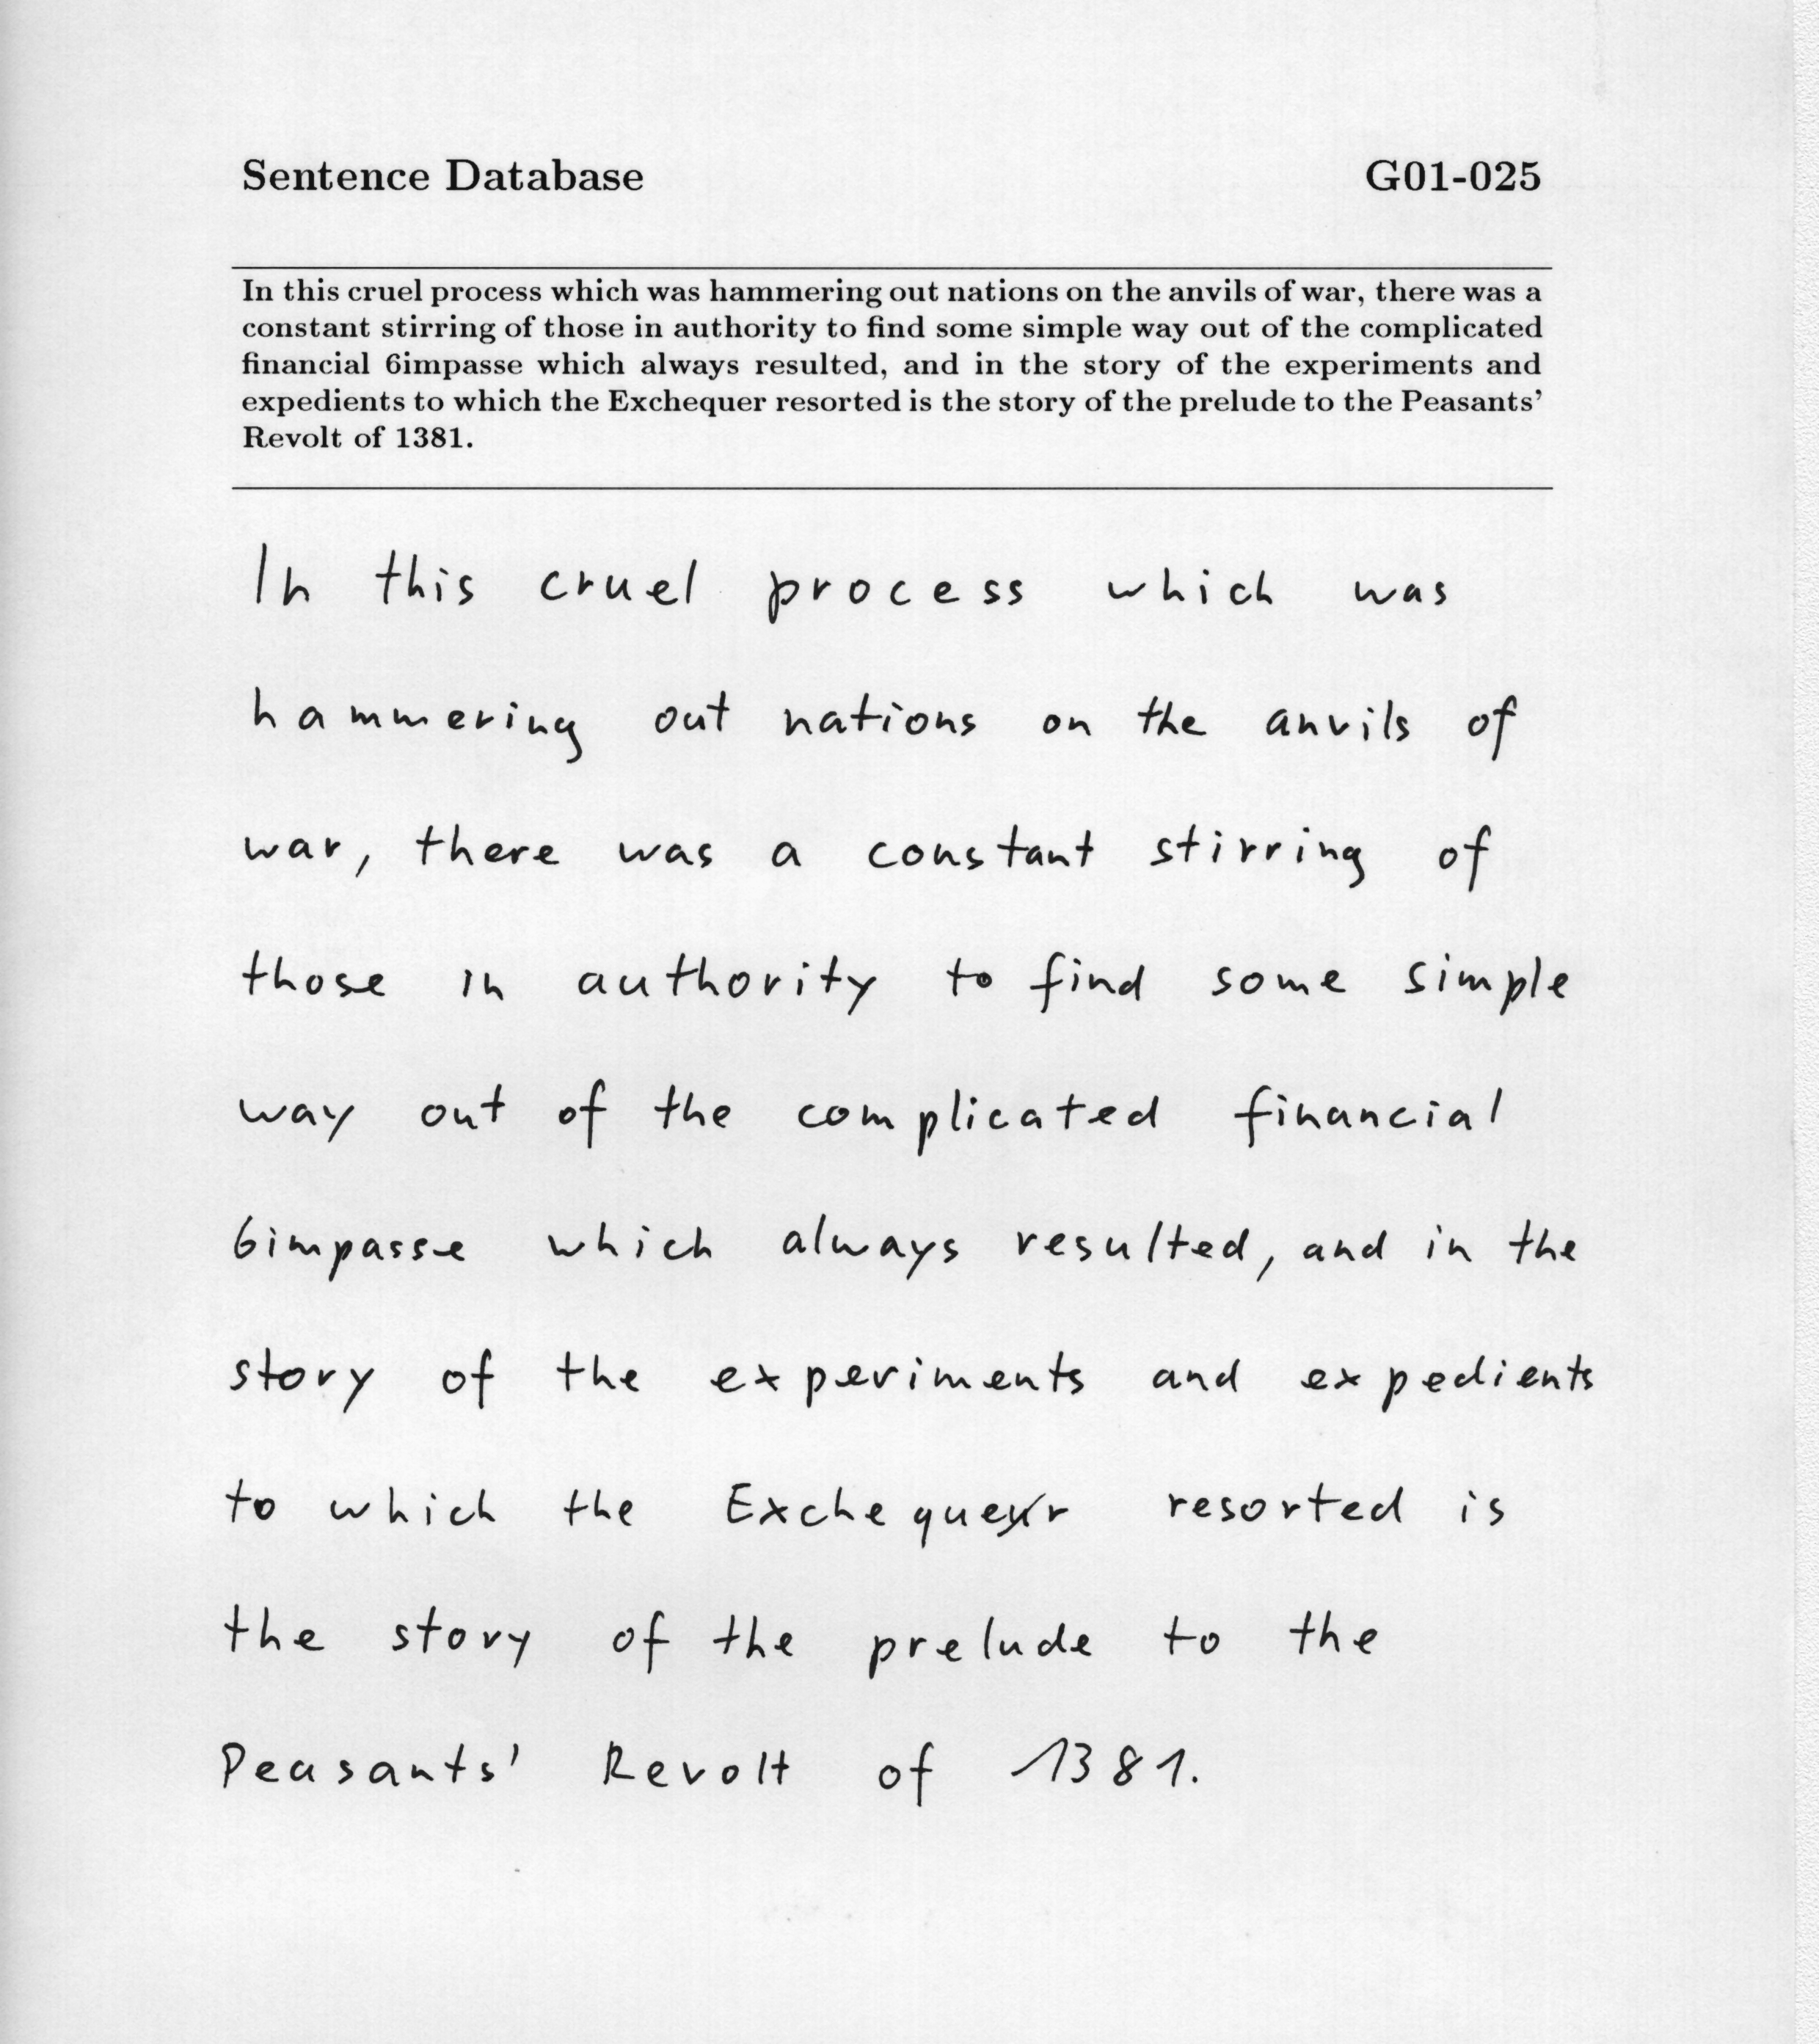 Sentence Database G01-025
In this cruel process which was hammering out nations on the anvils of war, there was a
constant stirring of those in authority to find some simple way out of the complicated
financial 6impasse which always resulted, and in the story of the experiments and
expedients to which the Exchequer resorted is the story of the prelude to the Peasants'
Revolt of 1381.
In this cruel process which was
hammering out nations on the anvils of
war, there was a constant stirring of
those in authority to find some simple
way out of the complicated financial
6impasse which always resulted, and in the
story of the experiments and expedients
to which the Exchequer resorted is
the story of the prelude to the
Peasants' Revolt of 1381.